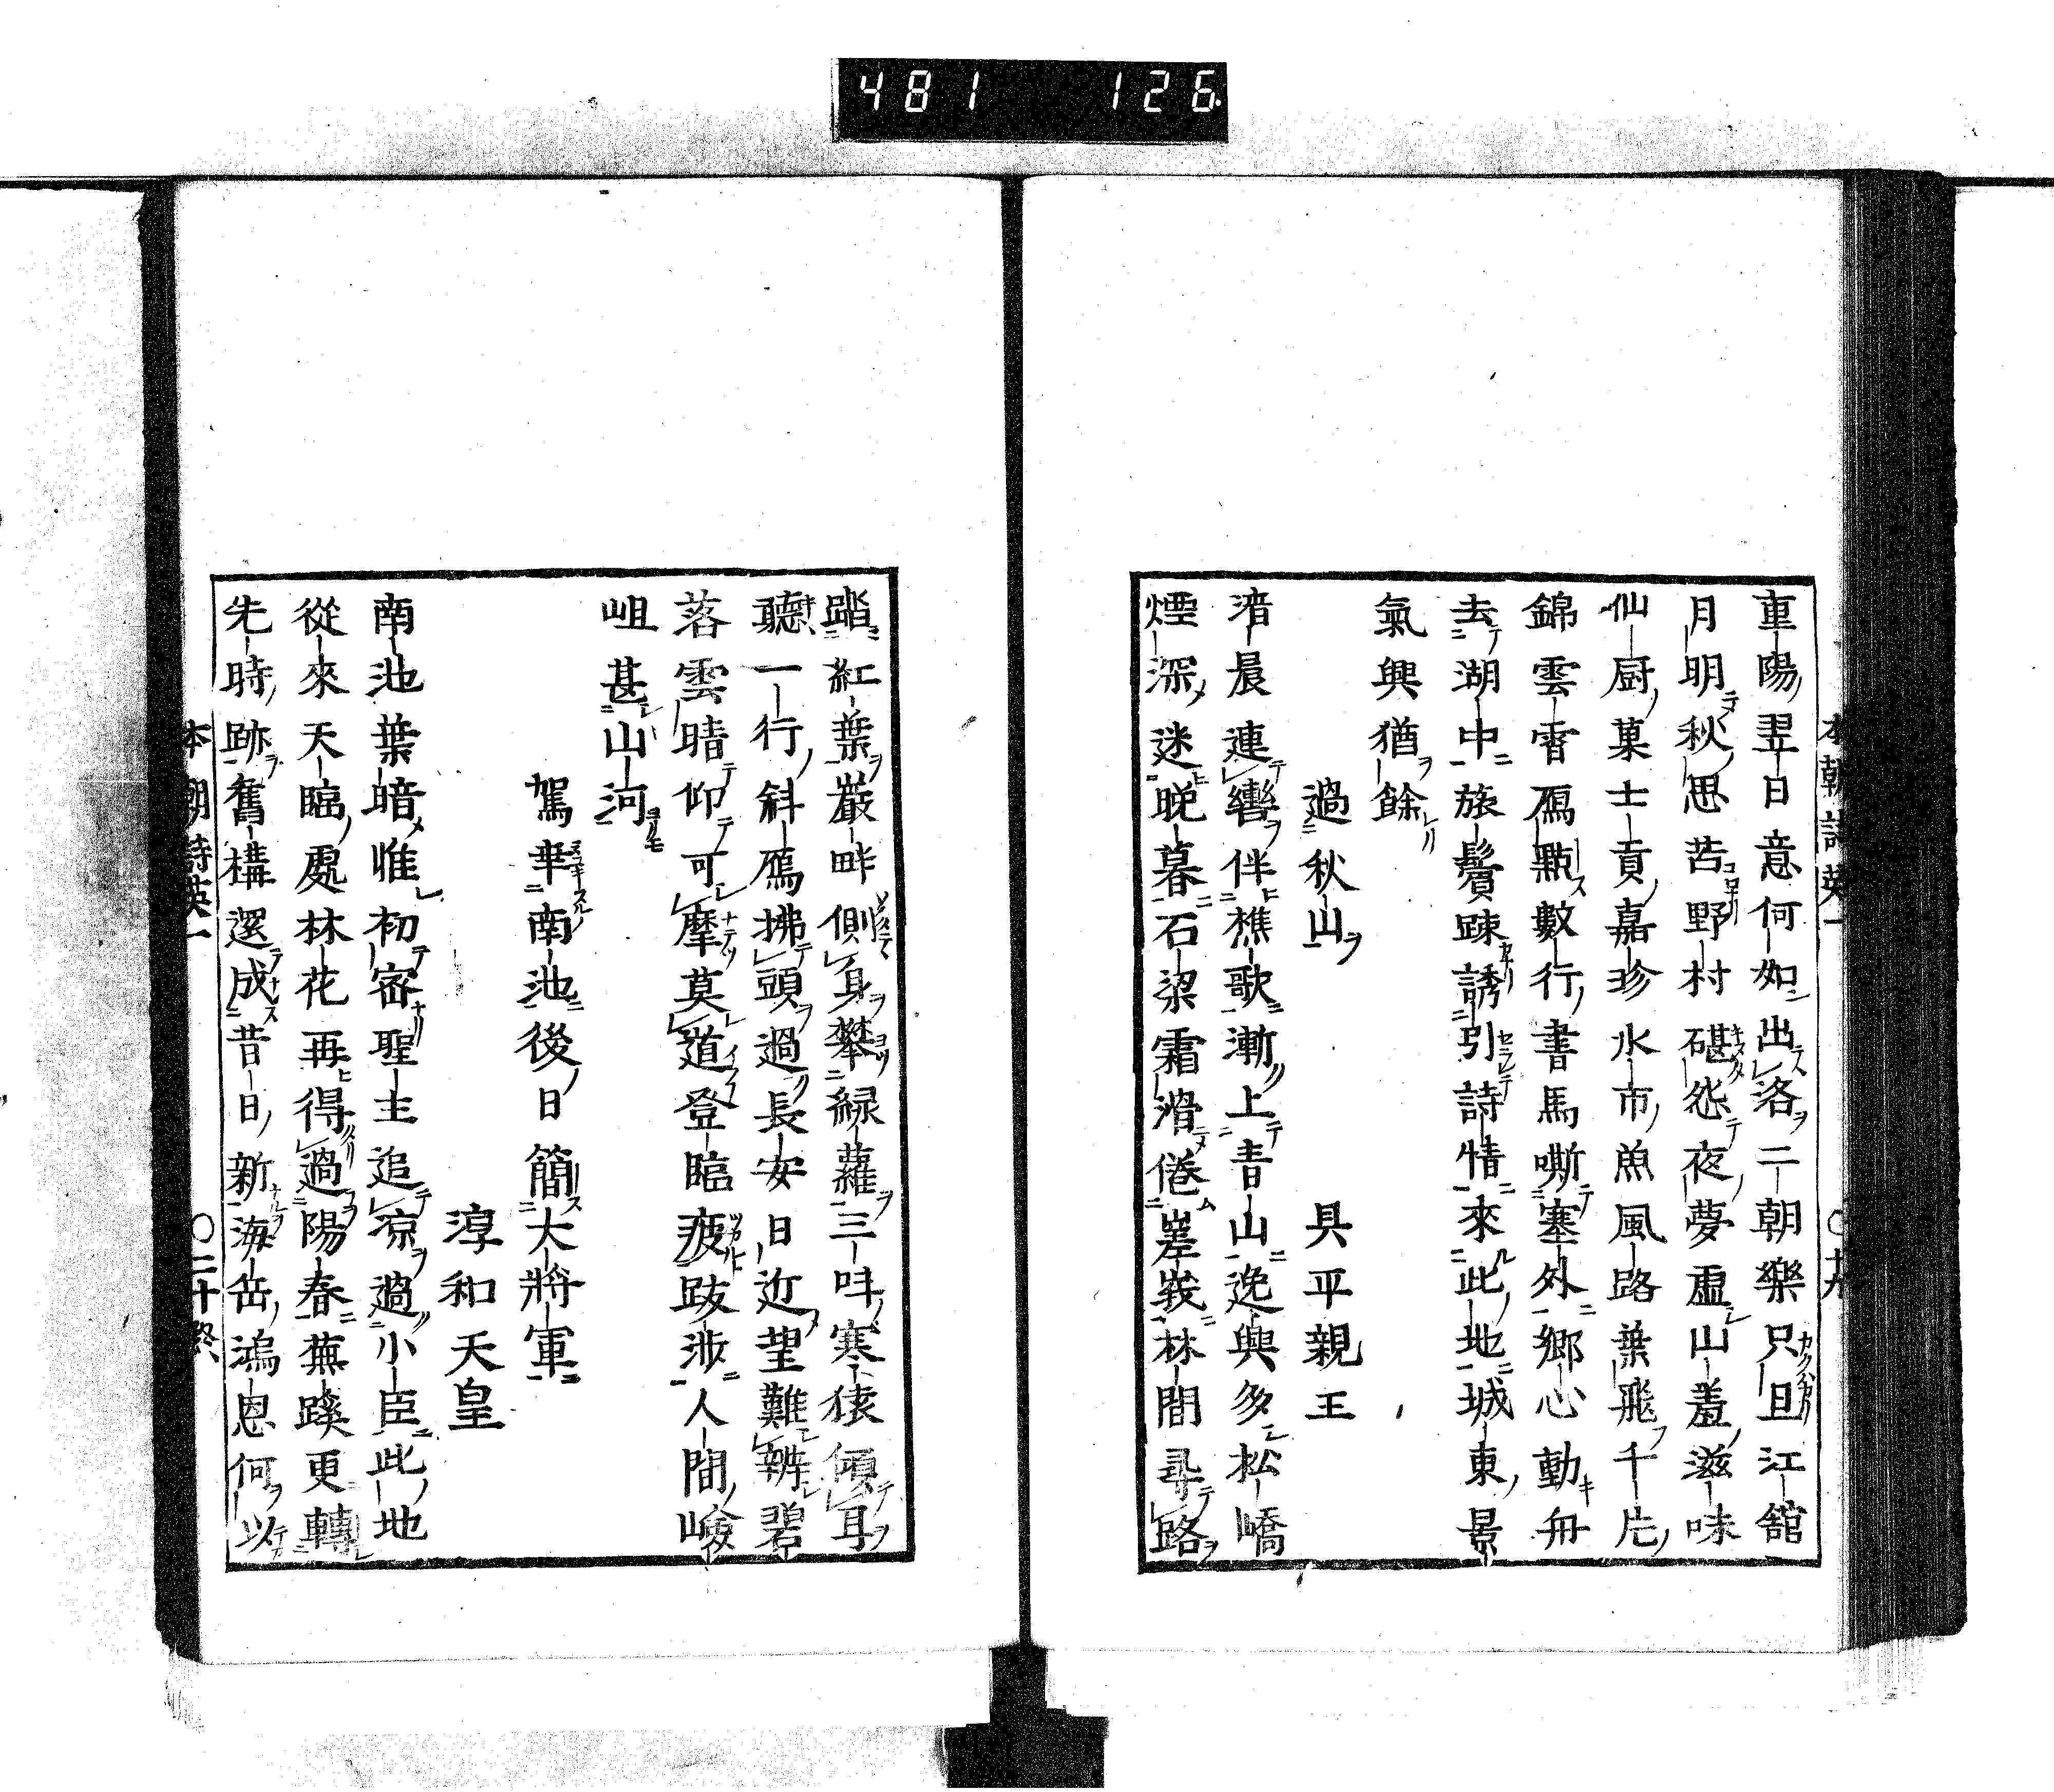 481 126
本朝詩英一 〇十九
重陽翌日意何如出洛二朝樂只且江舘
月明秋思苦野村碪怨夜夢虛山羞滋味
仙厨菓士貢嘉珍水市魚風路葉飛千片
錦雲霄鴈點數行書馬嘶塞外鄉心動舟
去湖中旅鬢踈誘引詩情來此地城東景
氣興猶餘
過秋山
具平親王
清晨連轡伴樵歌漸上青山逸興多松嶠
煙深迷晚暮石梁霜滑倦嵳峩林間尋路
踏紅葉巖畔側身攀綠蘿三呌寒猿傾耳
聽一行斜鴈拂頭過長安日近望難辨碧
落雲晴仰可摩莫道登臨疲跋涉人間嶮
岨甚山河
駕幸南池後日簡大將軍
淳和天皇
南池葉暗惟初密聖主追凉過小臣此地
從來天臨處林花再得過陽春蕪蹊更轉
先時跡舊構還成昔日新海岳鴻恩何以
本朝詩英一 〇二十終